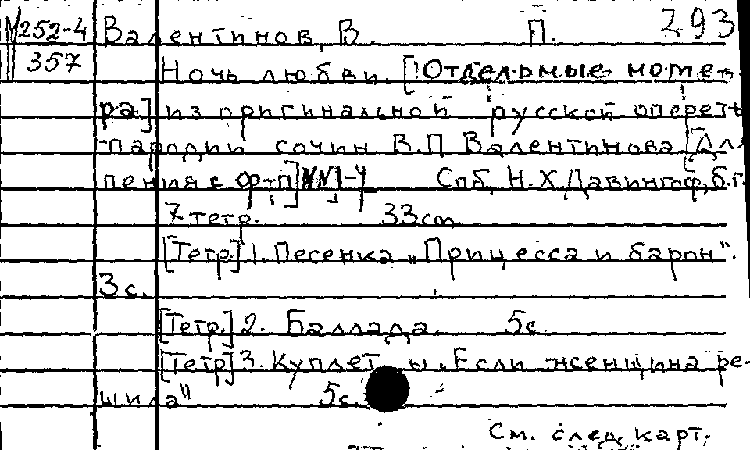 М252-4 Валентинов, В. П. 293
357 Ночь любви. [Отдельные номе-
ра] из оригинальной русской оперетты
-пародии сочин В.П Валентинова. [Для
пения с ф-п] NN1-4 Спб, Н.Х.Давингоф, б.г.
7 тетр. 33cm
[Тетр.] 1. Песенка „Прицесса и барон".
3 с.
[Тетр.] 2. Баллада. 5с
[Тетр] 3. Куплет ы „Если женщина ре-
шила" 5с.
См. след карт.